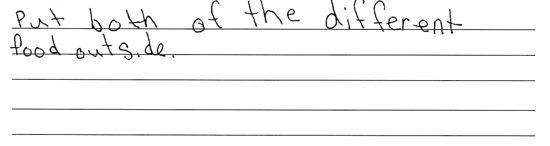 Put both of the different
food outside.